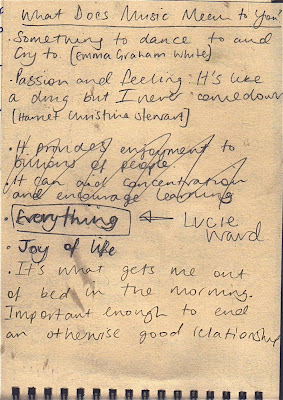 What Does Music Mean to You?
• Something to dance to and
Cry to [Emma Graham White]
• Passion and feeling: It's like
a drug but I never comedown
[Harriet Christine Stewart]
• It provides enjoyment to
billions of people
• It can aid concentration
and encourage learning
• Everything ⇐ Lucie
Ward.
• Joy of life
• It's what gets me out
of bed in the morning.
Important enough to end
an otherwise good relationship